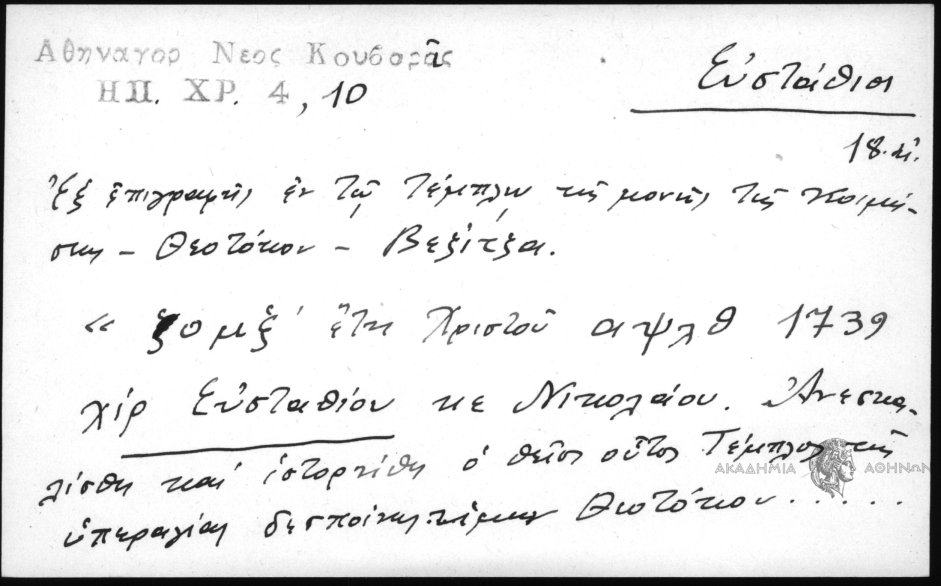 Αθηναγορ Νεος Κουβαρᾶς
ΗΠ. ΧΡ. 4, 10
Εὐστάθιοι
18. αἰ.
Ἐξ ἐπιγραφῆς ἐν τῷ τέμπλῳ τῆς μονῆς τῆς Κοιμή-
σεως – Θεοτόκου – Βεξίτξα.
« ζομξ' ἔτη Χριστοῦ αψλθ 1739
χίρ Εὐσταθίου κε Νικολάου. Ἀνεσκα-
λίσθη καὶ ἱστορήθη ὁ θεῖος οὗτος Τέμπλος τῆς
ὑπεραγίας δεσποίνης ἡμῶν Θεοτόκου . . . . .
ΑΚΑΔΗΜΙΑ ΑΘΗΝΩΝ